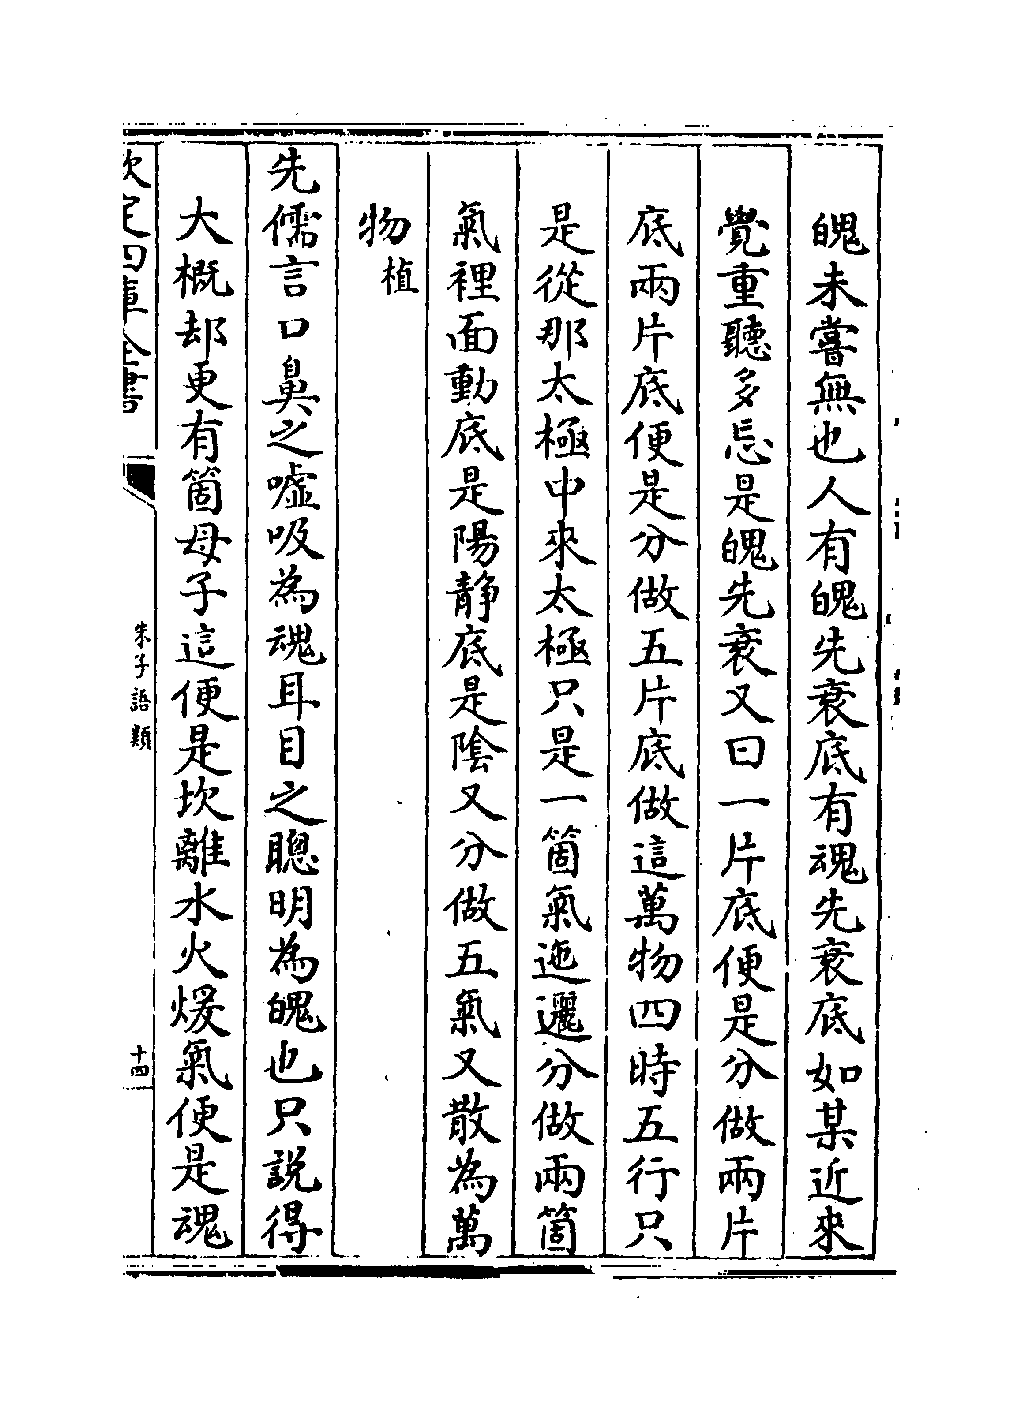 魄未嘗無也人有魄先衰底有魂先衰底如某近來
覺重聽多忘是魄先衰又曰一片底便是分做兩片
底兩片底便是分做五片底做這萬物四時五行只
是從那太極中來太極只是一箇氣迤邐分做兩箇
氣裡面動底是陽靜底是陰又分做五氣又散為萬
物植
先儒言口鼻之噓吸為魂耳目之聰明為魄也只說得
大概却更有箇母子這便是坎離水火煖氣便是魂
欽定四庫全書
朱子語類
十四